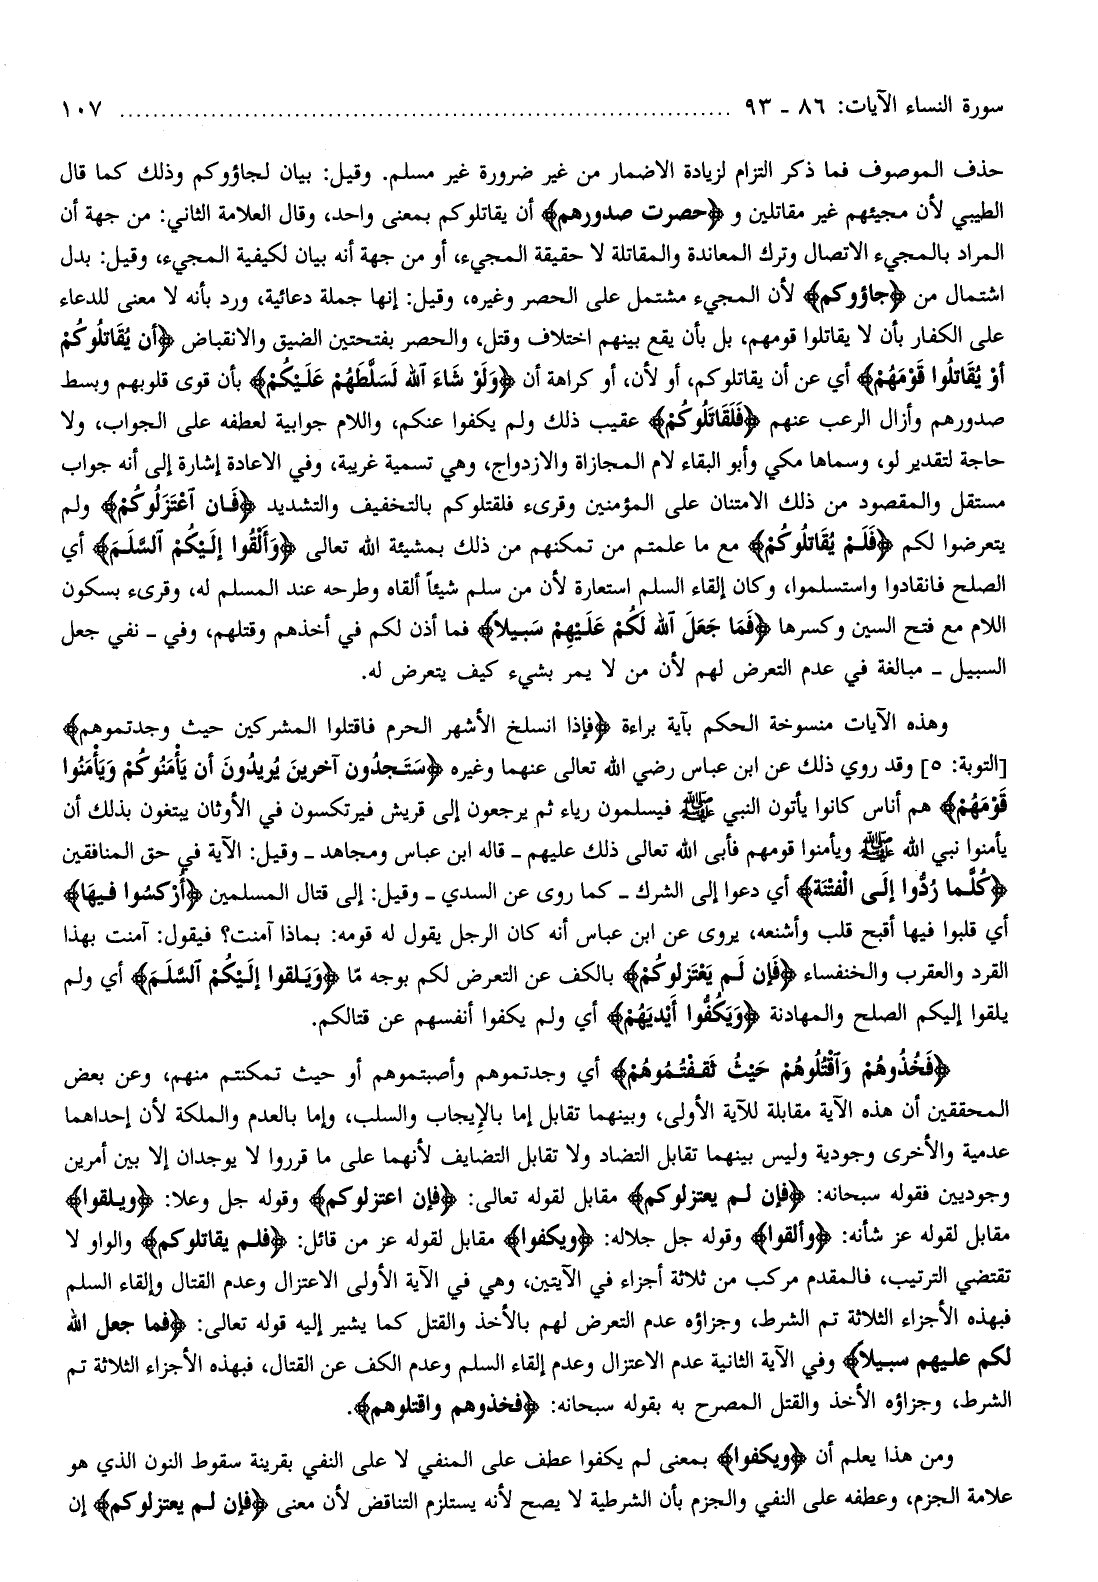 سورة النساء الآيات: ٨٦ ـ ٩٣ ........................................................................ ١٠٧
حذف الموصوف فما ذكر التزام لزيادة الاضمار من غير ضرورة غير مسلم. وقيل: بيان لجاؤوكم وذلك كما قال
الطيبي لأن مجيئهم غير مقاتلين و ﴿حصرت صدورهم﴾ أن يقاتلوكم بمعنى واحد، وقال العلامة الثاني: من جهة أن
المراد بالمجيء الاتصال وترك المعاندة والمقاتلة لا حقيقة المجيء، أو من جهة أنه بيان لكيفية المجيء، وقيل: بدل
اشتمال من ﴿جاؤوكم﴾ لأن المجيء مشتمل على الحصر وغيره، وقيل: إنها جملة دعائية، ورد بأنه لا معنى للدعاء
على الكفار بأن لا يقاتلوا قومهم، بل بأن يقع بينهم اختلاف وقتل، والحصر بفتحتين الضيق والانقباض ﴿أَن يُقَاتلُوكُمْ
أوْ يُقَاتلُوا قَوْمَهُمْ﴾ أي عن أن يقاتلوكم، أو لأن، أو كراهة أن ﴿وَلَوْ شَاءَ اللّه لَسَلَّطَهُمْ عَلَيْكُمْ﴾ بأن قوى قلوبهم وبسط
صدورهم وأزال الرعب عنهم ﴿فَلَقَاتَلُوكُمْ﴾ عقيب ذلك ولم يكفوا عنكم، واللام جوابية لعطفه على الجواب، ولا
حاجة لتقدير لو، وسماها مكي وأبو البقاء لام المجازاة والازدواج، وهي تسمية غريبة، وفي الاعادة إشارة إلى أنه جواب
مستقل والمقصود من ذلك الامتنان على المؤمنين وقرىء فلقتلوكم بالتخفيف والتشديد ﴿فَإن ٱعْتَزَلُوكُمْ﴾ ولم
يتعرضوا لكم ﴿فَلَمْ يُقَاتلُوكُمْ﴾ مع ما علمتم من تمكنهم من ذلك بمشيئة الله تعالى ﴿وَأَلْقُوا إلَيْكُمْ ٱلسَّلَمَ﴾ أي
الصلح فانقادوا واستسلموا، وكان إلقاء السلم استعارة لأن من سلم شيئاً ألقاه وطرحه عند المسلم له، وقرىء بسكون
اللام مع فتح السين وكسرها ﴿فَمَا جَعَلَ ٱللّه لَكُمْ عَلَيْهِمْ سَبيلاً﴾ فما أذن لكم في أخذهم وقتلهم، وفي ـ نفي جعل
السبيل ـ مبالغة في عدم التعرض لهم لأن من لا يمر بشيء كيف يتعرض له.
وهذه الآيات منسوخة الحكم بآية براءة ﴿فإذا انسلخ الأشهر الحرم فاقتلوا المشركين حيث وجدتموهم﴾
[التوبة: ٥] وقد روي ذلك عن ابن عباس رضي الله تعالى عنهما وغيره ﴿سَتَجدُون آخرينَ يُريدُونَ أن يَأْمَنُوكُمْ وَيَأْمَنُوا
قَوْمَهُمْ﴾ هم أناس كانوا يأتون النبي ﷺ فيسلمون رياء ثم يرجعون إلى قريش فيرتكسون في الأوثان يبتغون بذلك أن
يأمنوا نبي الله ﷺ ويأمنوا قومهم فأبى الله تعالى ذلك عليهم ـ قاله ابن عباس ومجاهد ـ وقيل: الآية في حق المنافقين
﴿كُلَّما رُدُّوا إلَى الْفتْنَة﴾ أي دعوا إلى الشرك ـ كما روى عن السدي ـ وقيل: إلى قتال المسلمين ﴿أُرْكسُوا فيهَا﴾
أي قلبوا فيها أقبح قلب وأشنعه، يروى عن ابن عباس أنه كان الرجل يقول له قومه: بماذا آمنت؟ فيقول: آمنت بهذا
القرد والعقرب والخنفساء ﴿فَإن لَم يَعْتَزلوكُمْ﴾ بالكف عن التعرض لكم بوجه مّا ﴿وَيَلقوا إلَيْكُمْ ٱلسَّلَمَ﴾ أي ولم
يلقوا إليكم الصلح والمهادنة ﴿وَيَكُفُّوا أَيْديَهُمْ﴾ أي ولم يكفوا أنفسهم عن قتالكم.
﴿فَخُذُوهُمْ وَٱقْتُلُوهُمْ حَيْثُ ثَقفْتُمُوهُمْ﴾ أي وجدتموهم وأصبتموهم أو حيث تمكنتم منهم، وعن بعض
المحققين أن هذه الآية مقابلة للآية الأولى، وبينهما تقابل إما بالإيجاب والسلب، وإما بالعدم والملكة لأن إحداهما
عدمية والأخرى وجودية وليس بينهما تقابل التضاد ولا تقابل التضايف لأنهما على ما قرروا لا يوجدان إلا بين أمرين
وجوديين فقوله سبحانه: ﴿فإن لم يعتزلوكم﴾ مقابل لقوله تعالى: ﴿فإن اعتزلوكم﴾ وقوله جل وعلا: ﴿ويلقوا﴾
مقابل لقوله عز شأنه: ﴿وألقوا﴾ وقوله جل جلاله: ﴿ويكفوا﴾ مقابل لقوله عز من قائل: ﴿فلم يقاتلوكم﴾ والواو لا
تقتضي الترتيب، فالمقدم مركب من ثلاثة أجزاء في الآيتين، وهي في الآية الأولى الاعتزال وعدم القتال وإلقاء السلم
فبهذه الأجزاء الثلاثة تم الشرط، وجزاؤه عدم التعرض لهم بالأخذ والقتل كما يشير إليه قوله تعالى: ﴿فما جعل الله
لكم عليهم سبيلاً﴾ وفي الآية الثانية عدم الاعتزال وعدم إلقاء السلم وعدم الكف عن القتال، فبهذه الأجزاء الثلاثة تم
الشرط، وجزاؤه الأخذ والقتل المصرح به بقوله سبحانه: ﴿فخذوهم واقتلوهم﴾.
ومن هذا يعلم أن ﴿ويكفوا﴾ بمعنى لم يكفوا عطف على المنفي لا على النفي بقرينة سقوط النون الذي هو
علامة الجزم، وعطفه على النفي والجزم بأن الشرطية لا يصح لأنه يستلزم التناقض لأن معنى ﴿فإن لم يعتزلوكم﴾ إن